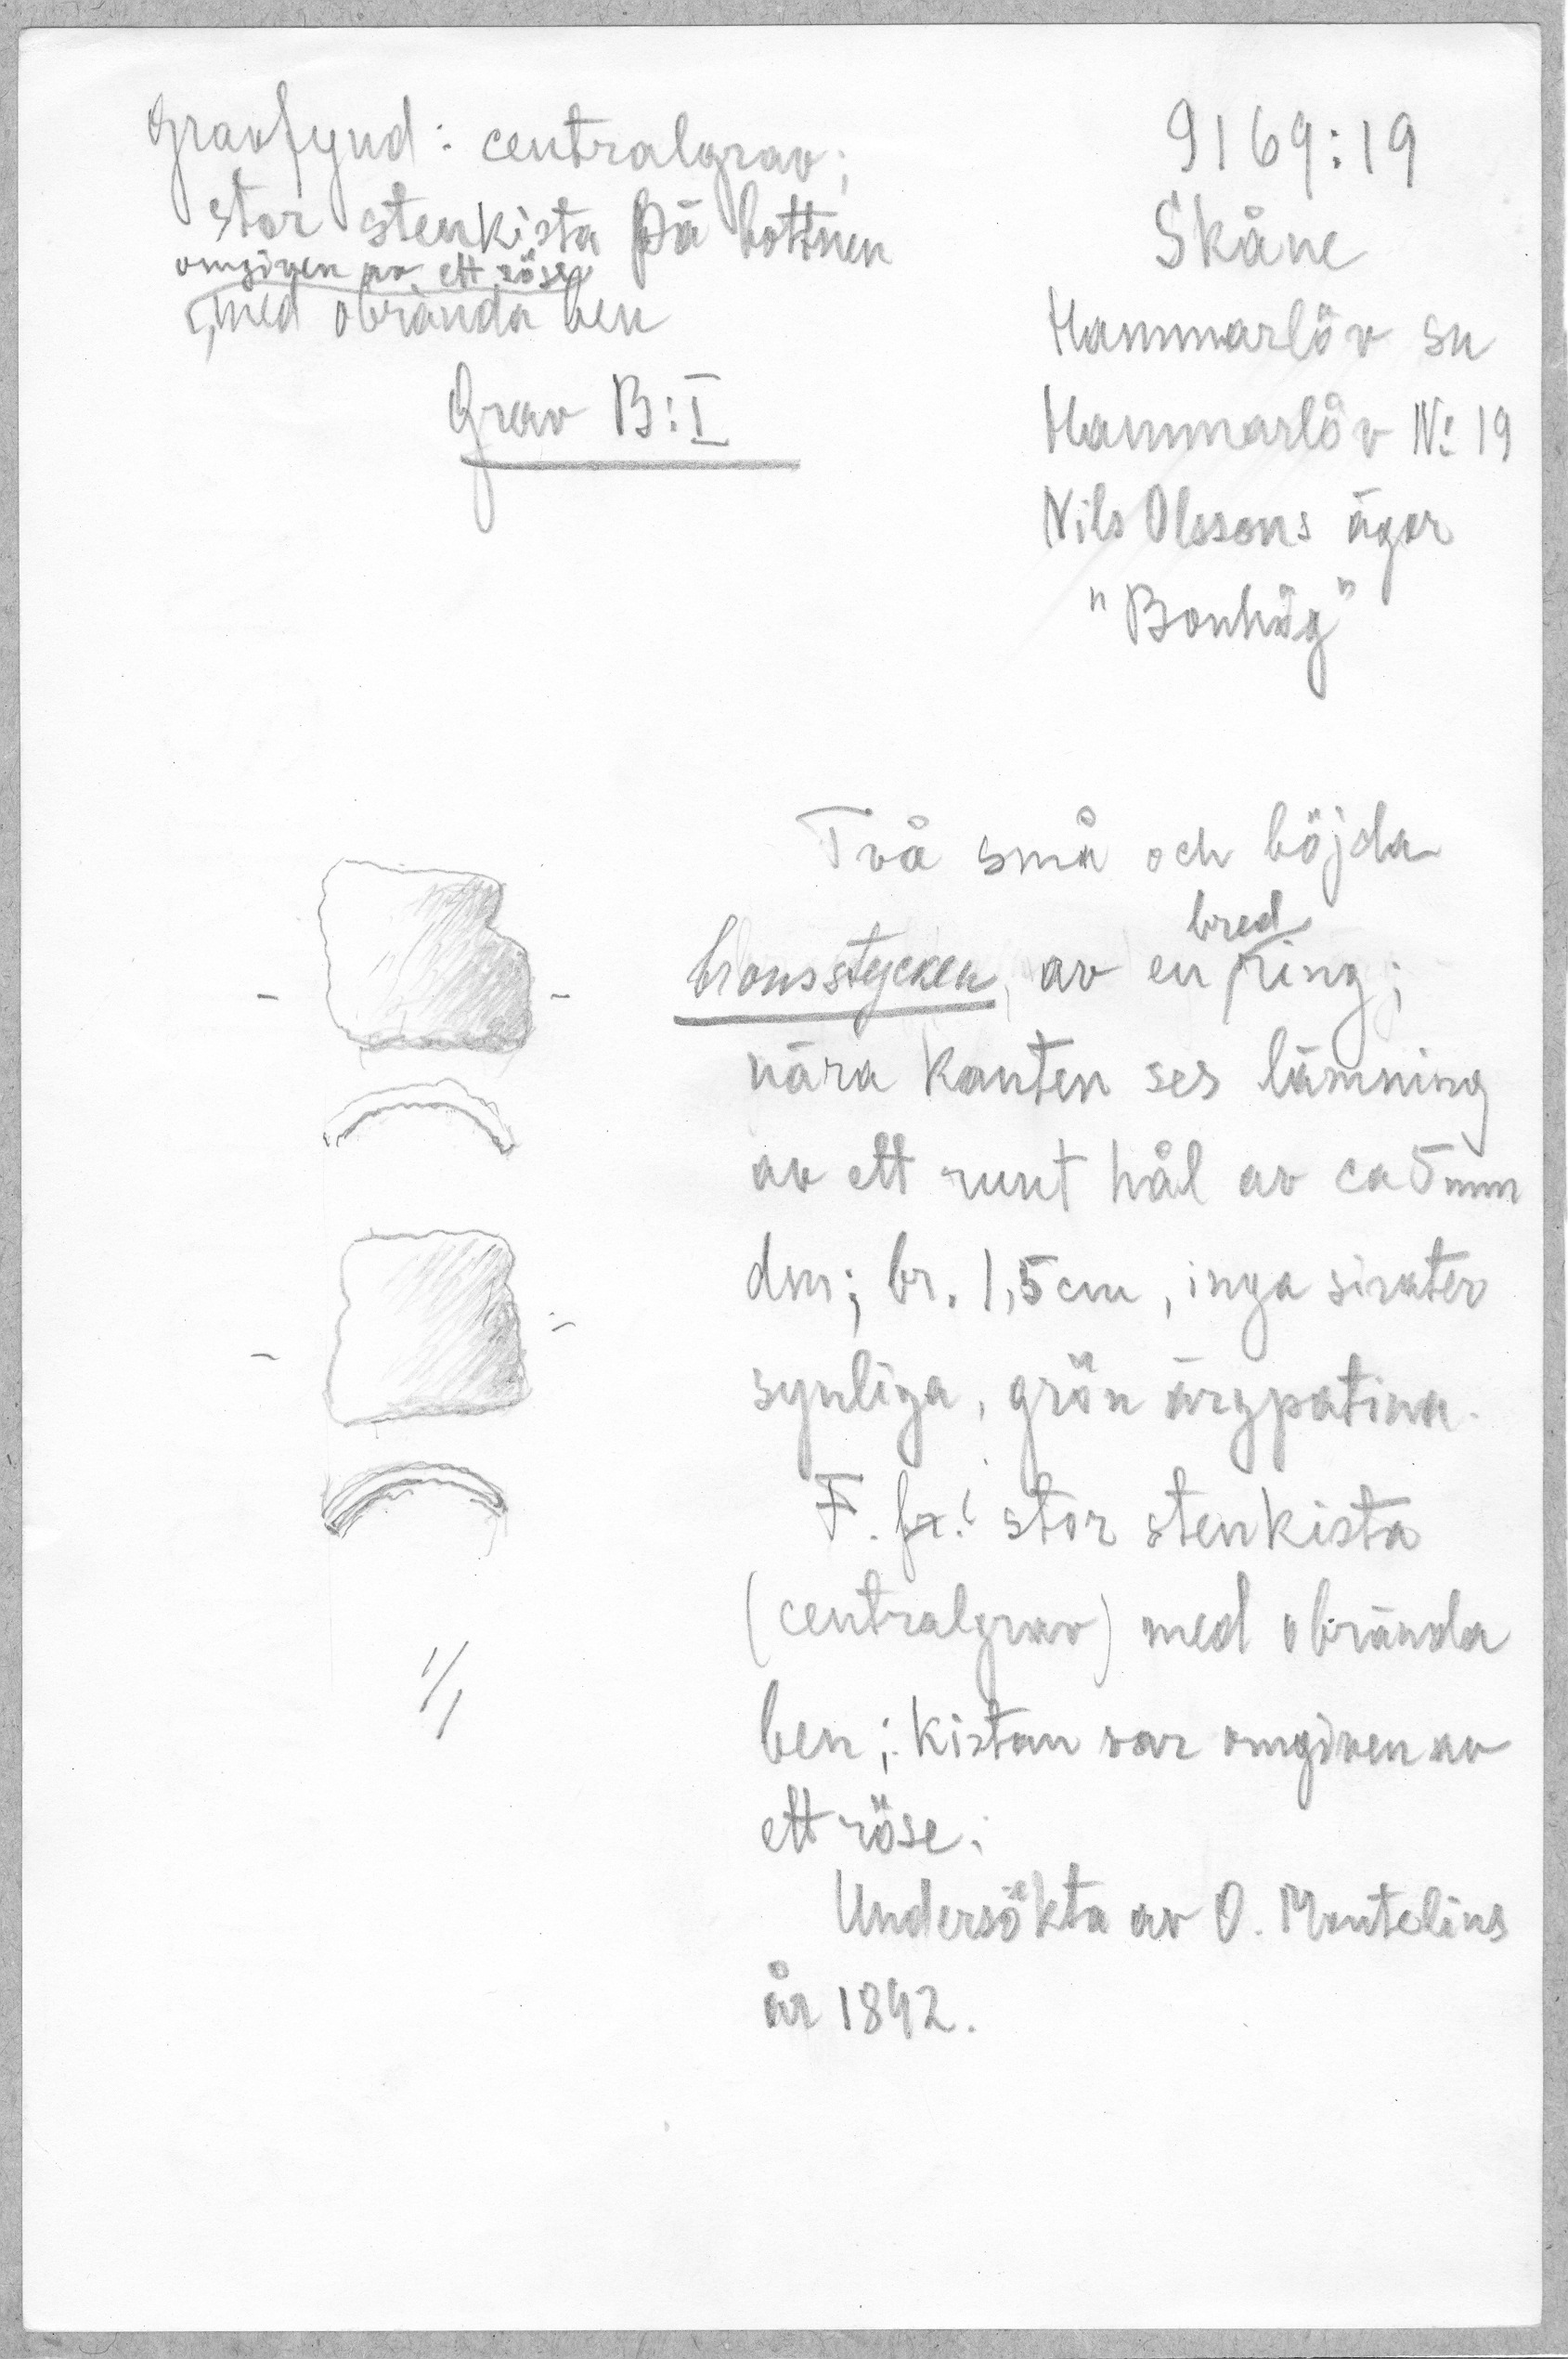 Gravfynd: centralgrav;
stor stenkista på bottnen
omgiven av ett röse
, med obrända ben
Grav B:I
9169:19
Skåne
Hammarlöv sn
Hammarlöv No 19
Nils Olssons ägor
"Bonhög"
Två små och böjda
bronsstycken, av en bred ring;
nära kanten ses lämning
av ett runt hål av ca 5 mm
dm; br. 1,5 cm, inga sirater
synliga, grön ärgpatina.
F. stor stenkista
(centralgrav) med obrända
ben; kistan var omgiven av
ett röse.
Undersökta av O. Montelius
år 1892.
1/1